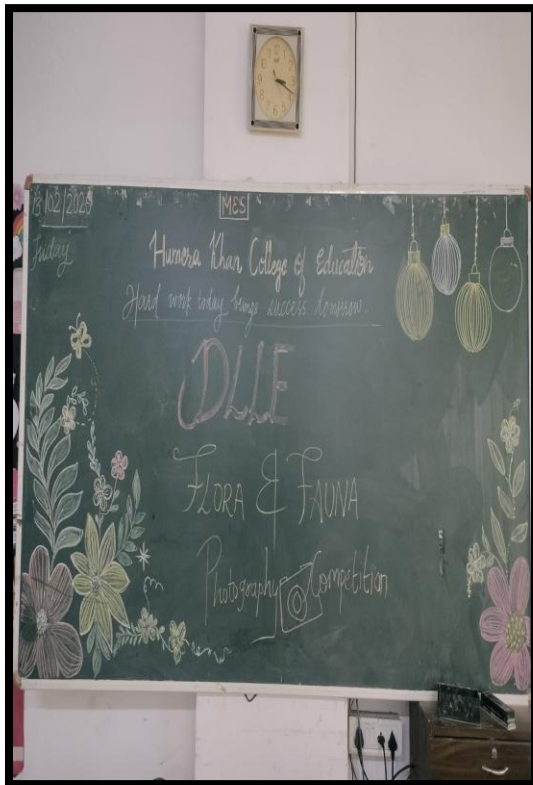 13/02/2026
Friday
MES
Humera Khan College of Education
Hard work today brings success tomorrow.
DLLE
FLORA & FAUNA
Photography Competition